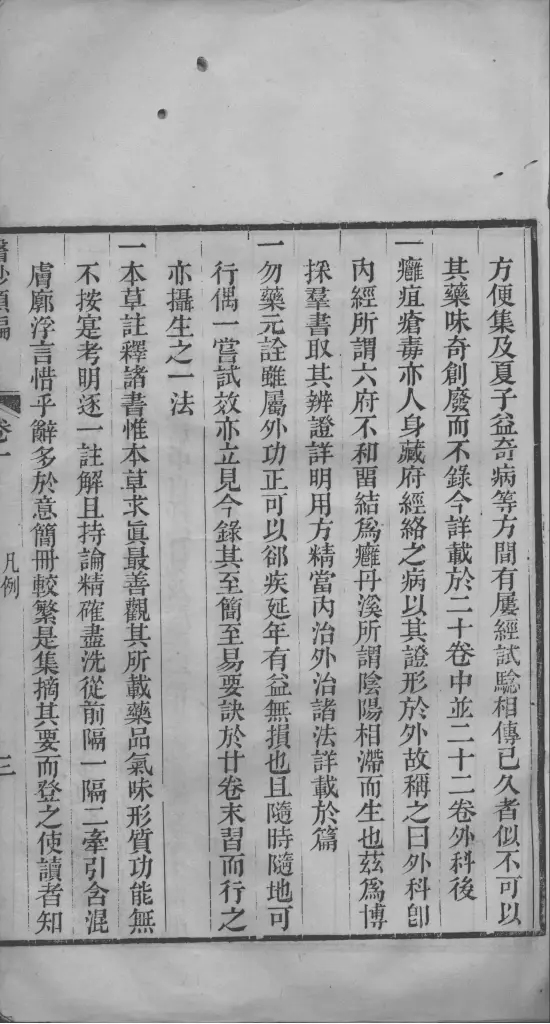 方便集及夏子益奇病等方間有屢經試驗相傳已久者似不可以
其藥味奇創廢而不錄今詳載於二十卷中並二十二卷外科後
一癰疽瘡毒亦人身藏府經絡之病以其證形於外故稱之曰外科卽
內經所謂六府不和畱結爲癰丹溪所謂陰陽相滯而生也茲爲博
採羣書取其辨證詳明用方精當內治外治諸法詳載於篇
一勿藥元詮雖屬外功正可以郤疾延年有益無損也且隨時隨地可
行偶一嘗試效亦立見今錄其至簡至易要訣於廿卷末習而行之
亦攝生之一法
一本草註釋諸書惟本草求眞最善觀其所載藥品氣味形質功能無
不按寔考明逐一註解且持論精確盡洗從前隔一隔二牽引含混
膚廓浮言惜乎辭多於意簡冊較繁是集摘其要而登之使讀者知
醫鈔類編
卷一
凡例
三